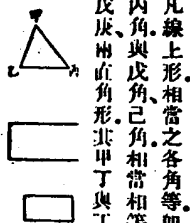 凡線上形相當之各角等
內角與戊角己角相當相等
戊庚兩直角形其甲丁與丁
甲
乙
丙